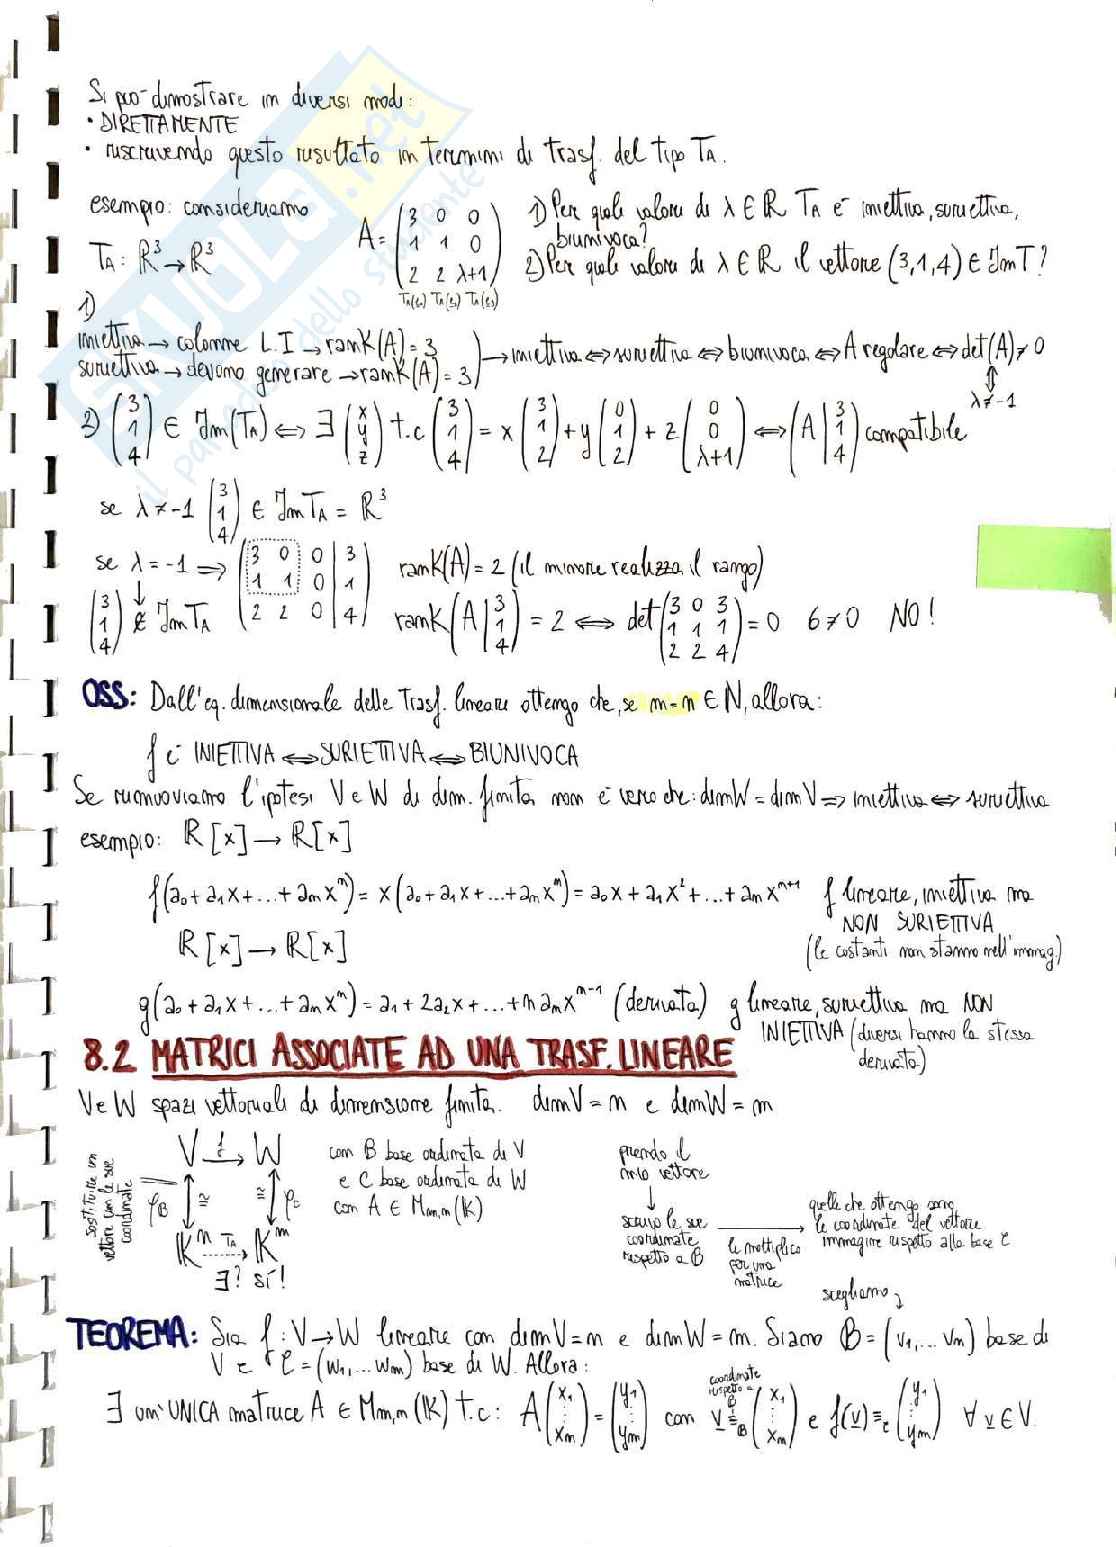 Si può dimostrare in diversi modi:
• DIRETTAMENTE
• riscrivendo questo risultato in termini di trasf. del tipo T_A.
esempio: consideriamo
T_A: ℝ³→ℝ³
A = (3 0 0 / 1 1 0 / 2 2 λ+1)
T_A(e₁) T_A(e₂) T_A(e₃)
1) Per quali valori di λ∈ℝ T_A è iniettiva, suriettiva, biunivoca?
2) Per quali valori di λ∈ℝ il vettore (3,1,4) ∈ Im T?
1)
iniettiva → colonne L.I → rank(A)=3
suriettiva → devono generare → rank(A)=3
→ iniettiva ⇔ suriettiva ⇔ biunivoca ⇔ A regolare ⇔ det(A)≠0
⇕
λ≠-1
2) (3 1 4) ∈ Im(T_A) ⇔ ∃ (x y z) t.c (3 1 4) = x (3 1 2) + y (0 1 2) + z (0 0 λ+1) ⇔ (A | 3 1 4) compatibile
se λ≠-1 (3 1 4) ∈ Im T_A = ℝ³
se λ=-1 ⇒ (3 0 0 | 3 / 1 1 0 | 1 / 2 2 0 | 4) rank(A)=2 (il minore realizza il rango)
(3 1 4) ∉ Im T_A
rank(A | 3 1 4) = 2 ⇔ det(3 0 3 / 1 1 1 / 2 2 4) = 0 6≠0 NO!
OSS: Dall'eq. dimensionale delle Trasf. lineari ottengo che, se m=n ∈ N, allora:
f è INIETTIVA ⇔ SURIETTIVA ⇔ BIUNIVOCA
Se rimuoviamo l'ipotesi V e W di dim. finita non è vero che: dimW = dimV ⇒ iniettiva ⇔ suriettiva
esempio: ℝ[x] → ℝ[x]
f(a₀+a₁x+...+aₙxⁿ) = x(a₀+a₁x+...+aₙxⁿ) = a₀x+a₁x²+...+aₙxⁿ⁺¹ f lineare, iniettiva ma
NON SURIETTIVA
(le costanti non stanno nell'immag.)
ℝ[x] → ℝ[x]
g(a₀+a₁x+...+aₙxⁿ) = a₁+2a₂x+...+n aₙxⁿ⁻¹ (derivata) g lineare, suriettiva ma NON
INIETTIVA (diversi hanno la stessa
derivata)
8.2 MATRICI ASSOCIATE AD UNA TRASF. LINEARE
V e W spazi vettoriali di dimensione finita. dimV=n e dimW=m
Sostituire un
vettore con le sue
coordinate
V →f W
φ_B ≅ ≅ φ_C
𝕂ⁿ T_A 𝕂ᵐ
∃? sì!
con B base ordinata di V
e C base ordinata di W
con A ∈ M_m,n(𝕂)
prendo il
mio vettore
↓
scrivo le sue
coordinate
rispetto a B
le moltiplico
per una
matrice
quelle che ottengo sono
le coordinate del vettore
immagine rispetto alla base C
scegliamo
TEOREMA: Sia f: V→W lineare con dimV=n e dimW=m. Siano B=(v₁,...vₙ) base di
V e C=(w₁,...wₘ) base di W. Allora:
∃ un'UNICA matrice A ∈ M_m,n(𝕂) t.c: A (x₁ ⋮ xₙ) = (y₁ ⋮ yₘ) con v ≡_B (x₁ ⋮ xₙ) e f(v) ≡_C (y₁ ⋮ yₘ) ∀ v∈V.
coordinate
rispetto a
B
SKUOLA.net
il paradiso dello studente